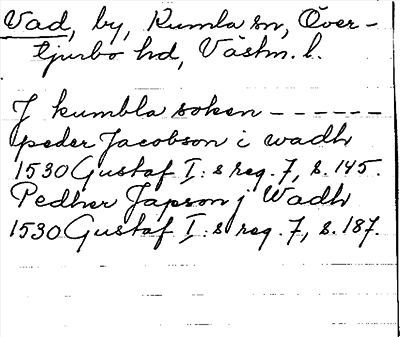 Vad, by, Kumla sn, Över-
tjurbo hd, Västm. l.
J kumbla soken - - - - - -
peder Jacobson i wadh
1530 Gustaf I:s reg. 7, s. 145.
Pedher Japson j Wadh
1530 Gustaf I:s reg. 7, s. 187.